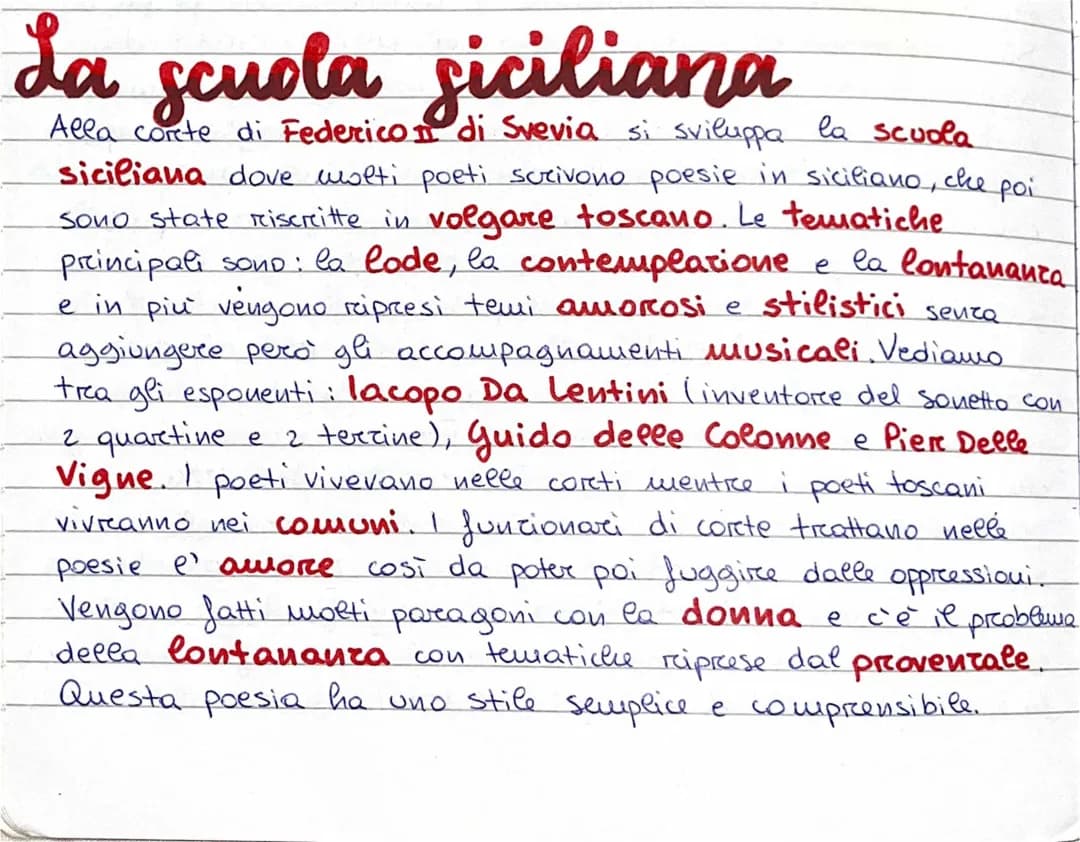 La scuola siciliana
Alla corte di Federico II di Svevia si sviluppa la scuola
siciliana dove molti poeti scrivono poesie in siciliano, che poi
sono state riscritte in volgare toscano. Le tematiche
principali sono: la lode, la contemplazione e la lontananza
e in più vengono ripresi temi amorosi e stilistici senza
aggiungere però gli accompagnamenti musicali. Vediamo
tra gli esponenti: Iacopo Da Lentini (inventore del sonetto con
2 quartine e 2 terzine), Guido delle Colonne e Pier Delle
Vigne. I poeti vivevano nelle corti mentre i poeti toscani
vivranno nei comuni. I funzionari di corte trattano nelle
poesie l'amore così da poter poi fuggire dalle oppressioni.
Vengono fatti molti paragoni con la donna e c'è il problema
della lontananza con tematiche riprese dal provenzale.
Questa poesia ha uno stile semplice e comprensibile.